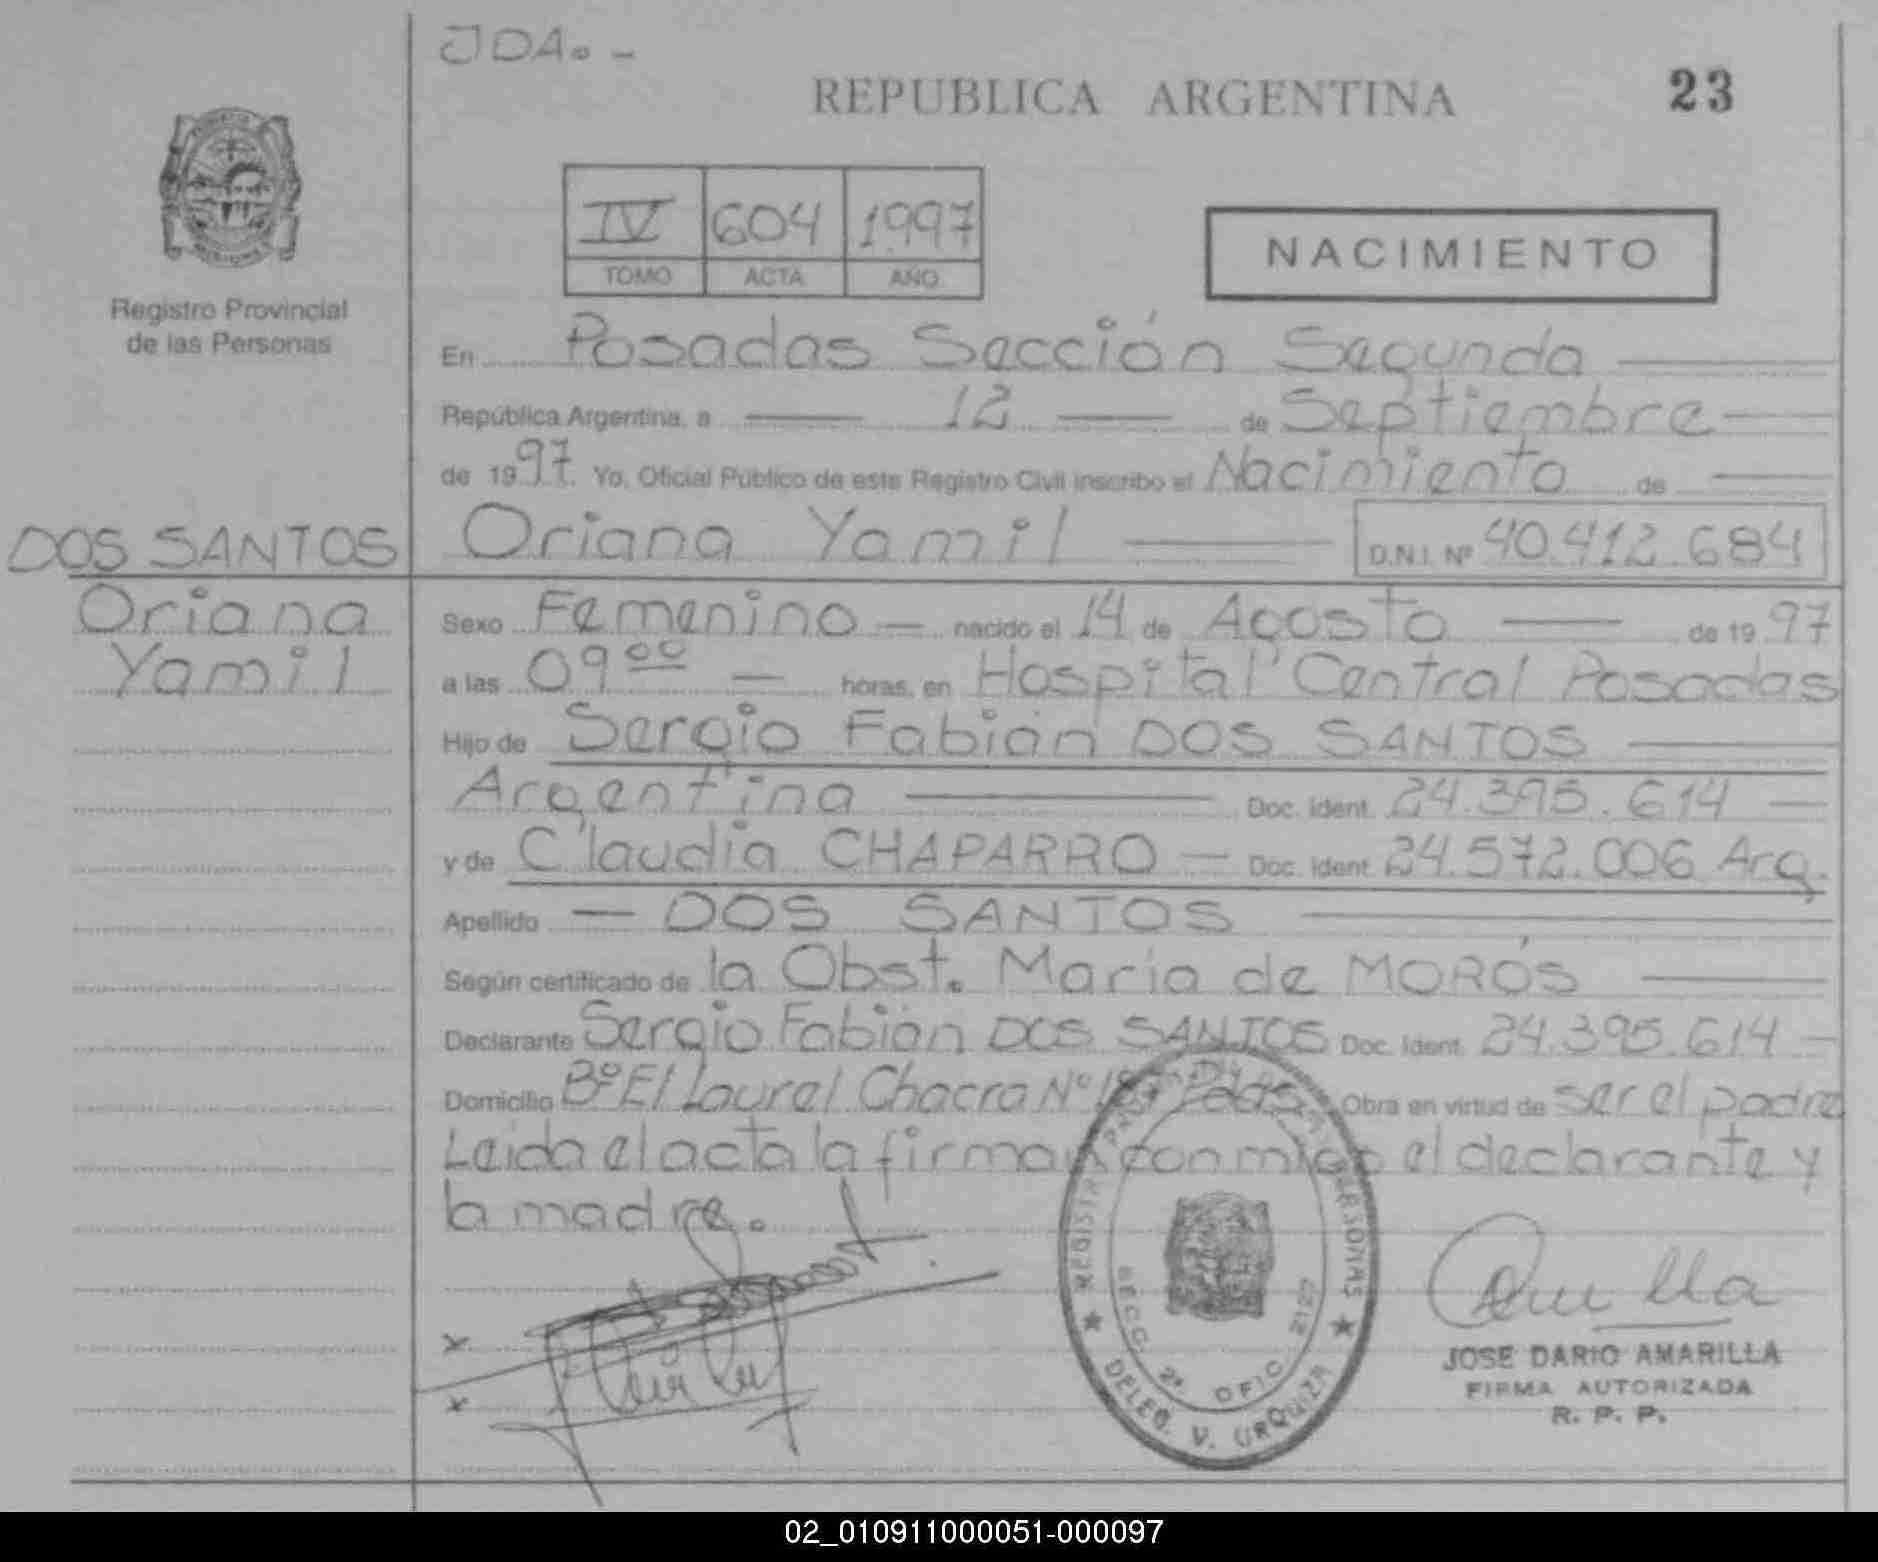 JDA. -
REPUBLICA ARGENTINA
23
IV 604 1997
TOMO ACTA AÑO
NACIMIENTO
Registro Provincial
de las Personas
En Posadas Sección Segunda
República Argentina, a 12 de Septiembre
de 1997. Yo, Oficial Público de este Registro Civil inscribo el Nacimiento de
DOS SANTOS
Oriana
Yamil
Oriana Yamil D.N.I. Nº 40.412.684
Sexo Femenino - nacido el 14 de Agosto de 1997
a las 09ºº - horas, en Hospital Central Posadas
Hijo de Sergio Fabián DOS SANTOS
Argentina Doc. Ident. 24.395.614 -
y de Claudia CHAPARRO - Doc. Ident. 24.572.006 Arg.
Apellido - DOS SANTOS
Según certificado de la Obst. María de MORÓS
Declarante Sergio Fabián DOS SANTOS Doc. Ident. 24.395.614 -
Domicilio Bº El Laurel Chacra Nº Pdas Obra en virtud de ser el padre
Leida el acta la firman conmigo el declarante y
la madre.
x
x
REGISTRO PERSONAS
SECC. 2ª. OFIC.
DELEG. V. URQUIZA
JOSE DARIO AMARILLA
FIRMA AUTORIZADA
R. P. P.
02_010911000051-000097